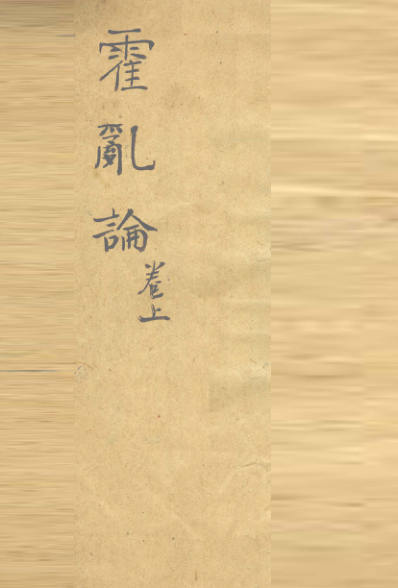 霍亂論
卷上